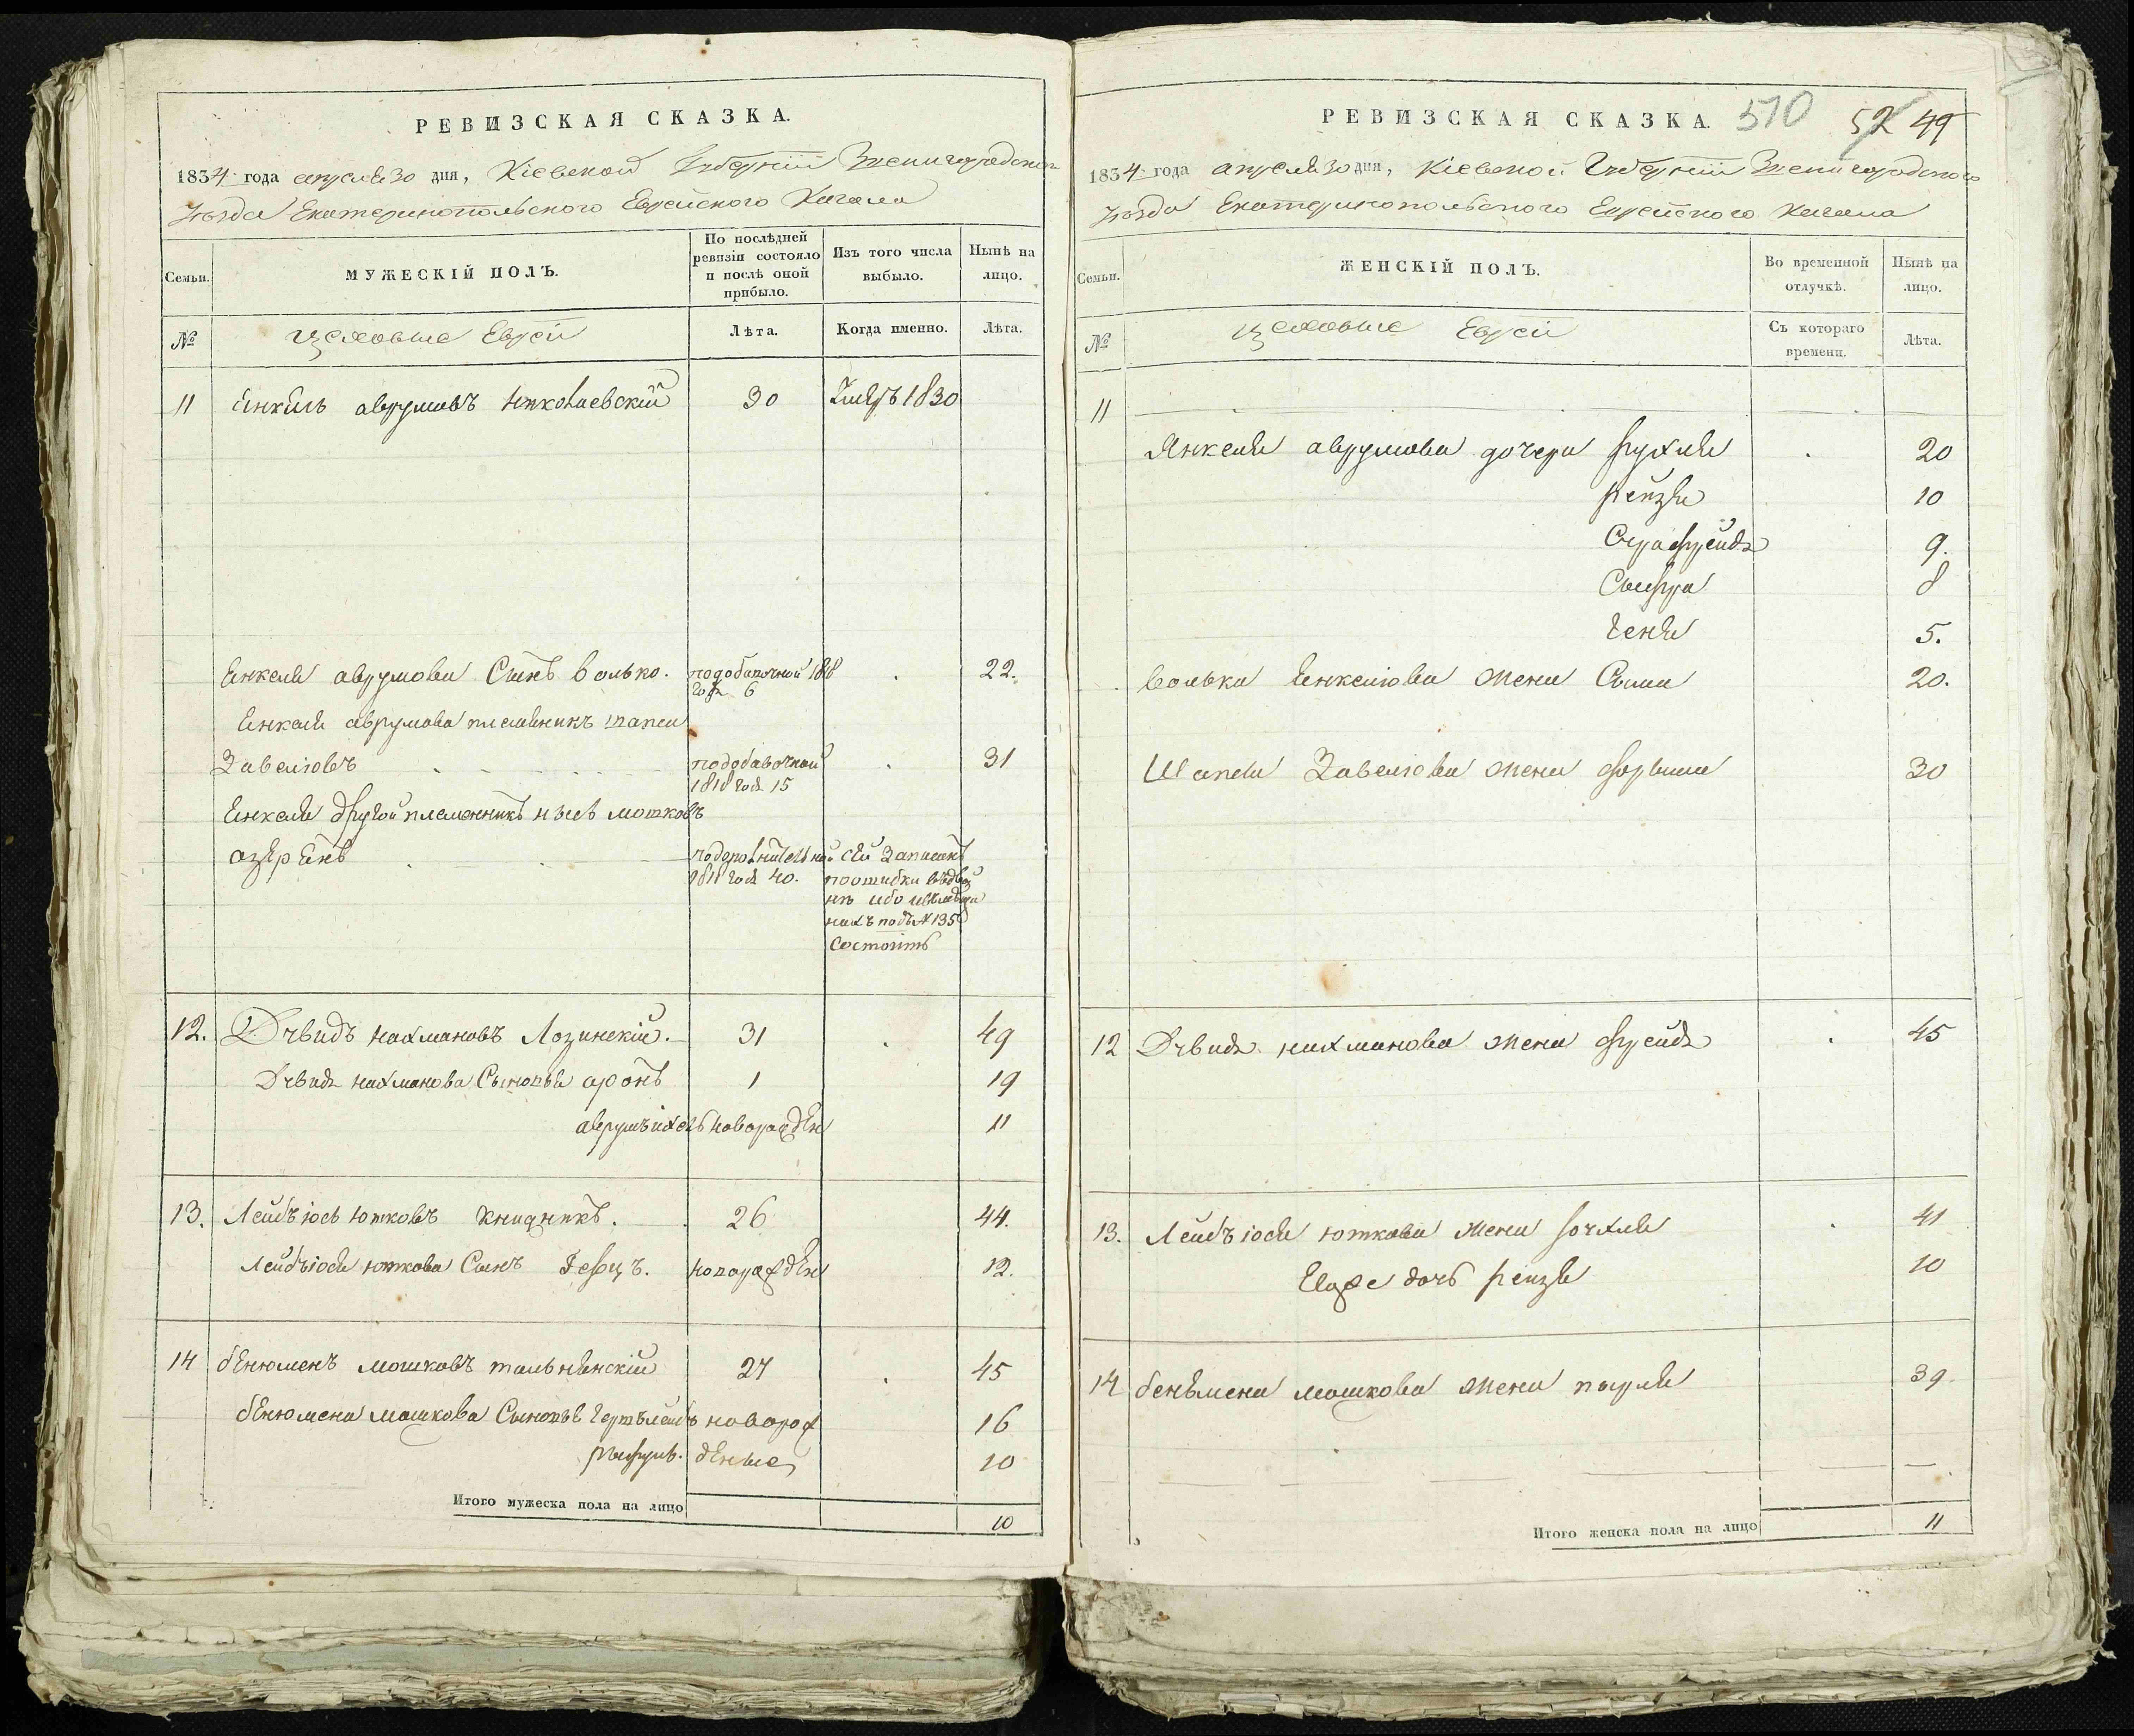 РЕВИЗСКАЯ СКАЗКА.
1834 года апреля 30 дня, Кіевской Губерніи Звенигородскаго
уезда Екатеринопольского Еврейского Кагала
Семьи.
МУЖЕСКІЙ ПОЛЪ.
По послѣдней ревизіи состояло и послѣ оной прибыло.
Изъ того числа выбыло.
Нынѣ на лицо.
№
Цеховые Евреи
Лѣта.
Когда именно.
Лѣта.
11 Енкель аврумовъ 30 умеръ 1830
Енкеля аврумова Сынъ волько. подобавочной 1818 22.
года 6
Енкеля аврумова племеникъ шапси
Завелювъ подобавочной 31
1818 года 15
Енкеля другой племенникъ мошковъ
40. сей записанъ
поошибки
ибо
подъ № 135
Состоитъ
12. Дувидъ нахмановъ Лозинскій. 31 49
Дувида нахмана Сыновья аронъ 1 19
новорожден 11
13. Лейбъ іось ютковъ 26 44.
Лейбъ іося юткова Сынъ новорожден 12.
14 бенюменъ мошковъ тальнянскій 27 45
бенюмена мошкова Сыновья новорож 16
дены 10
Итого мужеска пола на лицо
10
РЕВИЗСКАЯ СКАЗКА.
510 52 49
1834 года апреля 30 дня, Кіевской Губерніи Звенигородского
уезда Екатеринопольского Еврейского Кагала
Семьи.
ЖЕНСКІЙ ПОЛЪ.
Во временной отлучкѣ.
Нынѣ на лицо.
№
Цеховые Евреи
Съ котораго времени.
Лѣта.
11
Янкеля аврумова дочери рухля 20
рейзя 10
Сурафрейда 9.
Сыфра 8
Геня 5.
Волька Енкелюва жена Сыма 20.
Шапси Завелюва жена 30
12 Дувида нахманова жена фрейда 45
13. Лейбъ іося юткова жена рухля 41
Егоже дочь рейзя 10
14 бенюмена мошкова жена перля 39
Итого женска пола на лицо
11